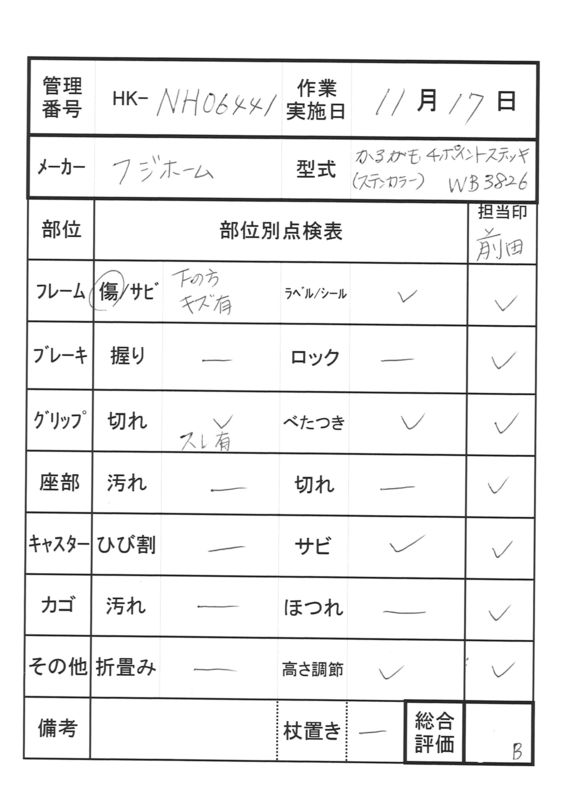 管理番号 HK- NH06441 作業実施日 11月17日
メーカー フジホーム 型式 かるがも4ポイントステッキ (ステンカラー) WB3826
部位 部位別点検表 担当印 前田
フレーム 傷/サビ 下の方キズ有 ラベル/シール ✓ ✓
ブレーキ 握り — ロック — ✓
グリップ 切れ ✓ スレ有 べたつき ✓ ✓
座部 汚れ — 切れ — ✓
キャスター ひび割 — サビ ✓ ✓
カゴ 汚れ — ほつれ — ✓
その他 折畳み — 高さ調節 ✓ ✓
備考 杖置き — 総合評価 B